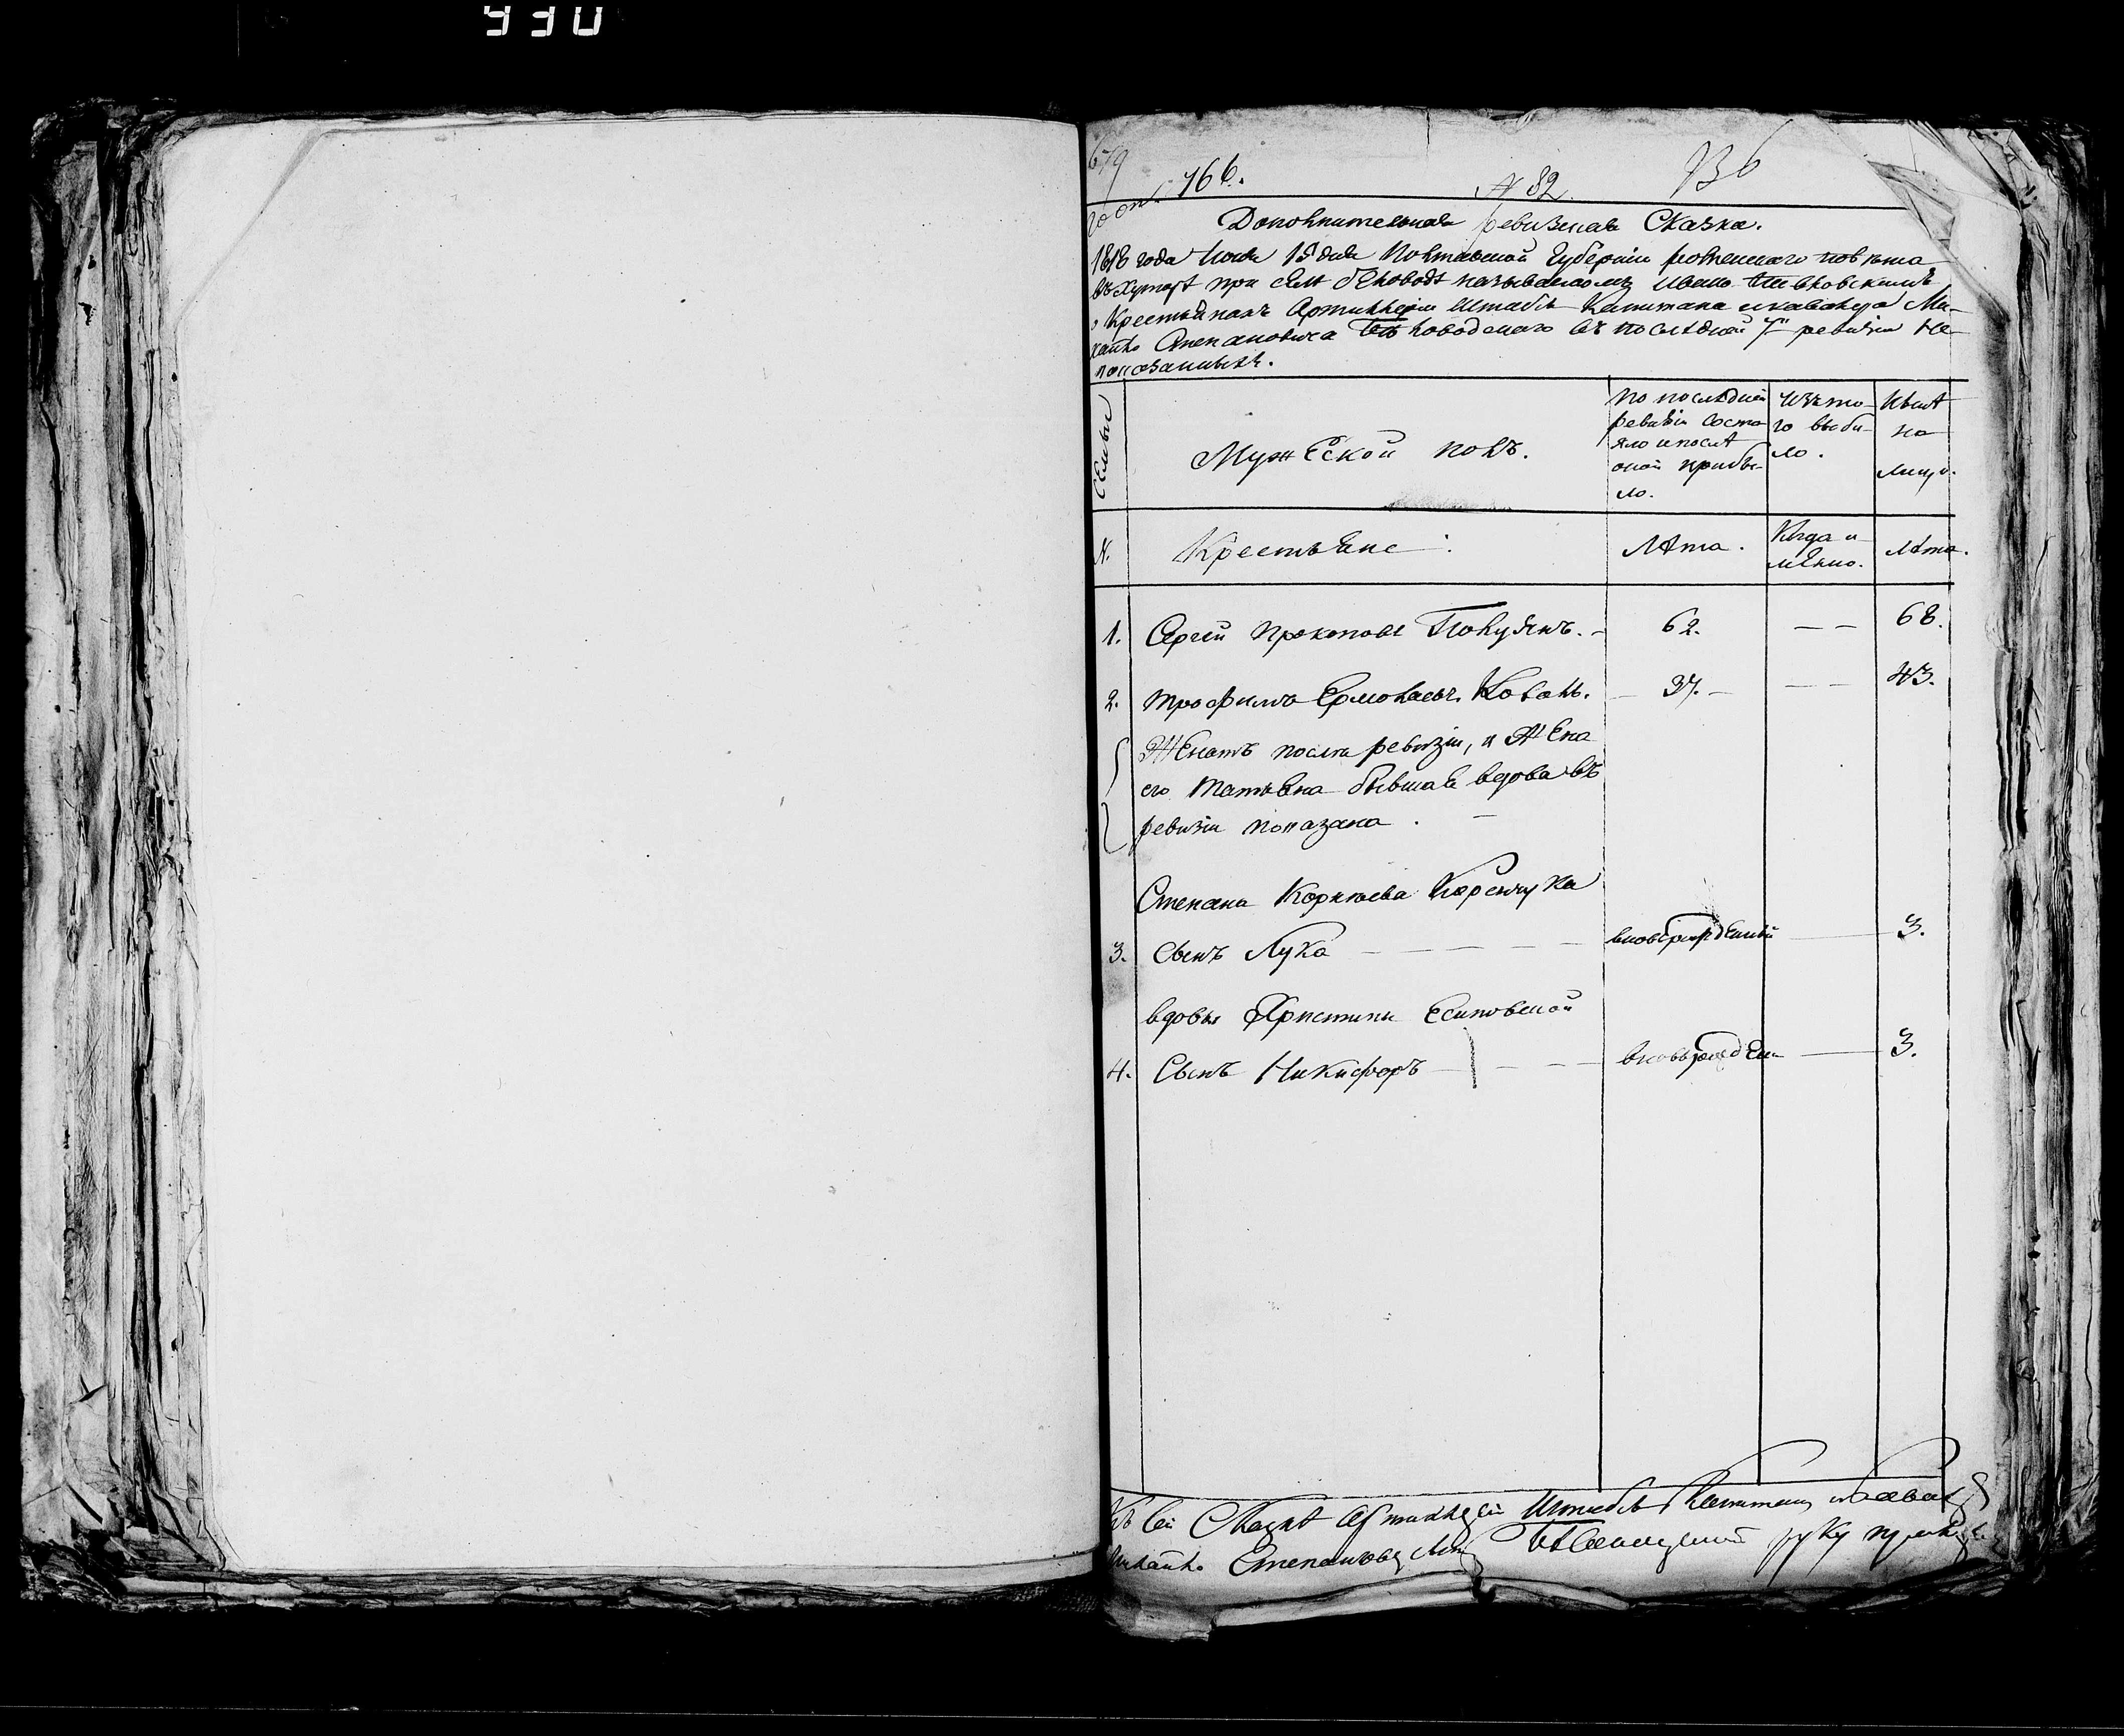 930
679
166.
№ 82.
Дополнительная ревизская Сказка.
1818 года Июня 15 дня Полтавской Губернии роменского повѣта
въ Хуторѣ при селѣ бѣловодѣ называемомъ Ивано
о Крестьянахъ Артиллеріи Штабсъ Капитана и кавалера Ми-
хайло Степановича въ послѣдней 7й ревизіи не
показанныхъ.
Семьи
Мужеской полъ.
По послѣдней
ревизіи состо
яло и послѣ
оной прибы-
ло.
Изъ то-
го выбы-
ло.
Нынѣ
на
лицо.
№.
Крестьяне:
Лѣта.
Когда и
менно.
Лѣта.
1. Сергей Прокоповъ — 62. — — 68.
2. Трофимъ Ермолаевъ Коваль. — 37. — — — 43.
Женатъ после ревизіи, и Жена
его Татьяна бывшая вдова въ
ревизіи показана. —
Степана Корнѣева
3. Сынъ Лука — — — — вновьрожденный — 3.
вдовы Христины Есиповской
4. Сынъ Никифоръ — — — вновьрожден — 3.
Къ сей Сказкѣ Артиллеріи Штабсъ Капитанъ и кавалеръ
Михайло Степановъ Сынъ руку приложилъ